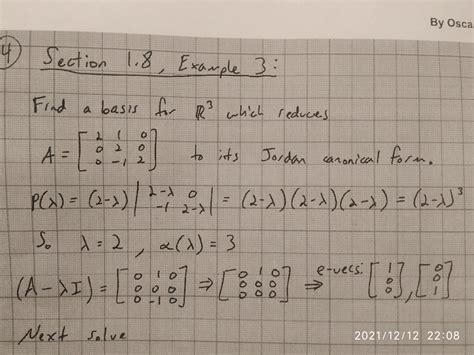 By Osca
4
Section 1.8, Example 3:
Find a basis for ℝ³ which reduces
A = [2 1 0; 0 2 0; 0 -1 2] to its Jordan canonical form.
P(λ) = (2-λ) |2-λ 0; -1 2-λ| = (2-λ)(2-λ)(2-λ) = (2-λ)³
So λ = 2, α(λ) = 3
(A - λI) = [0 1 0; 0 0 0; 0 -1 0] ⇒ [0 1 0; 0 0 0; 0 0 0] ⇒ e-vecs: [1; 0; 0], [0; 0; 1]
Next solve
2021/12/12 22:08